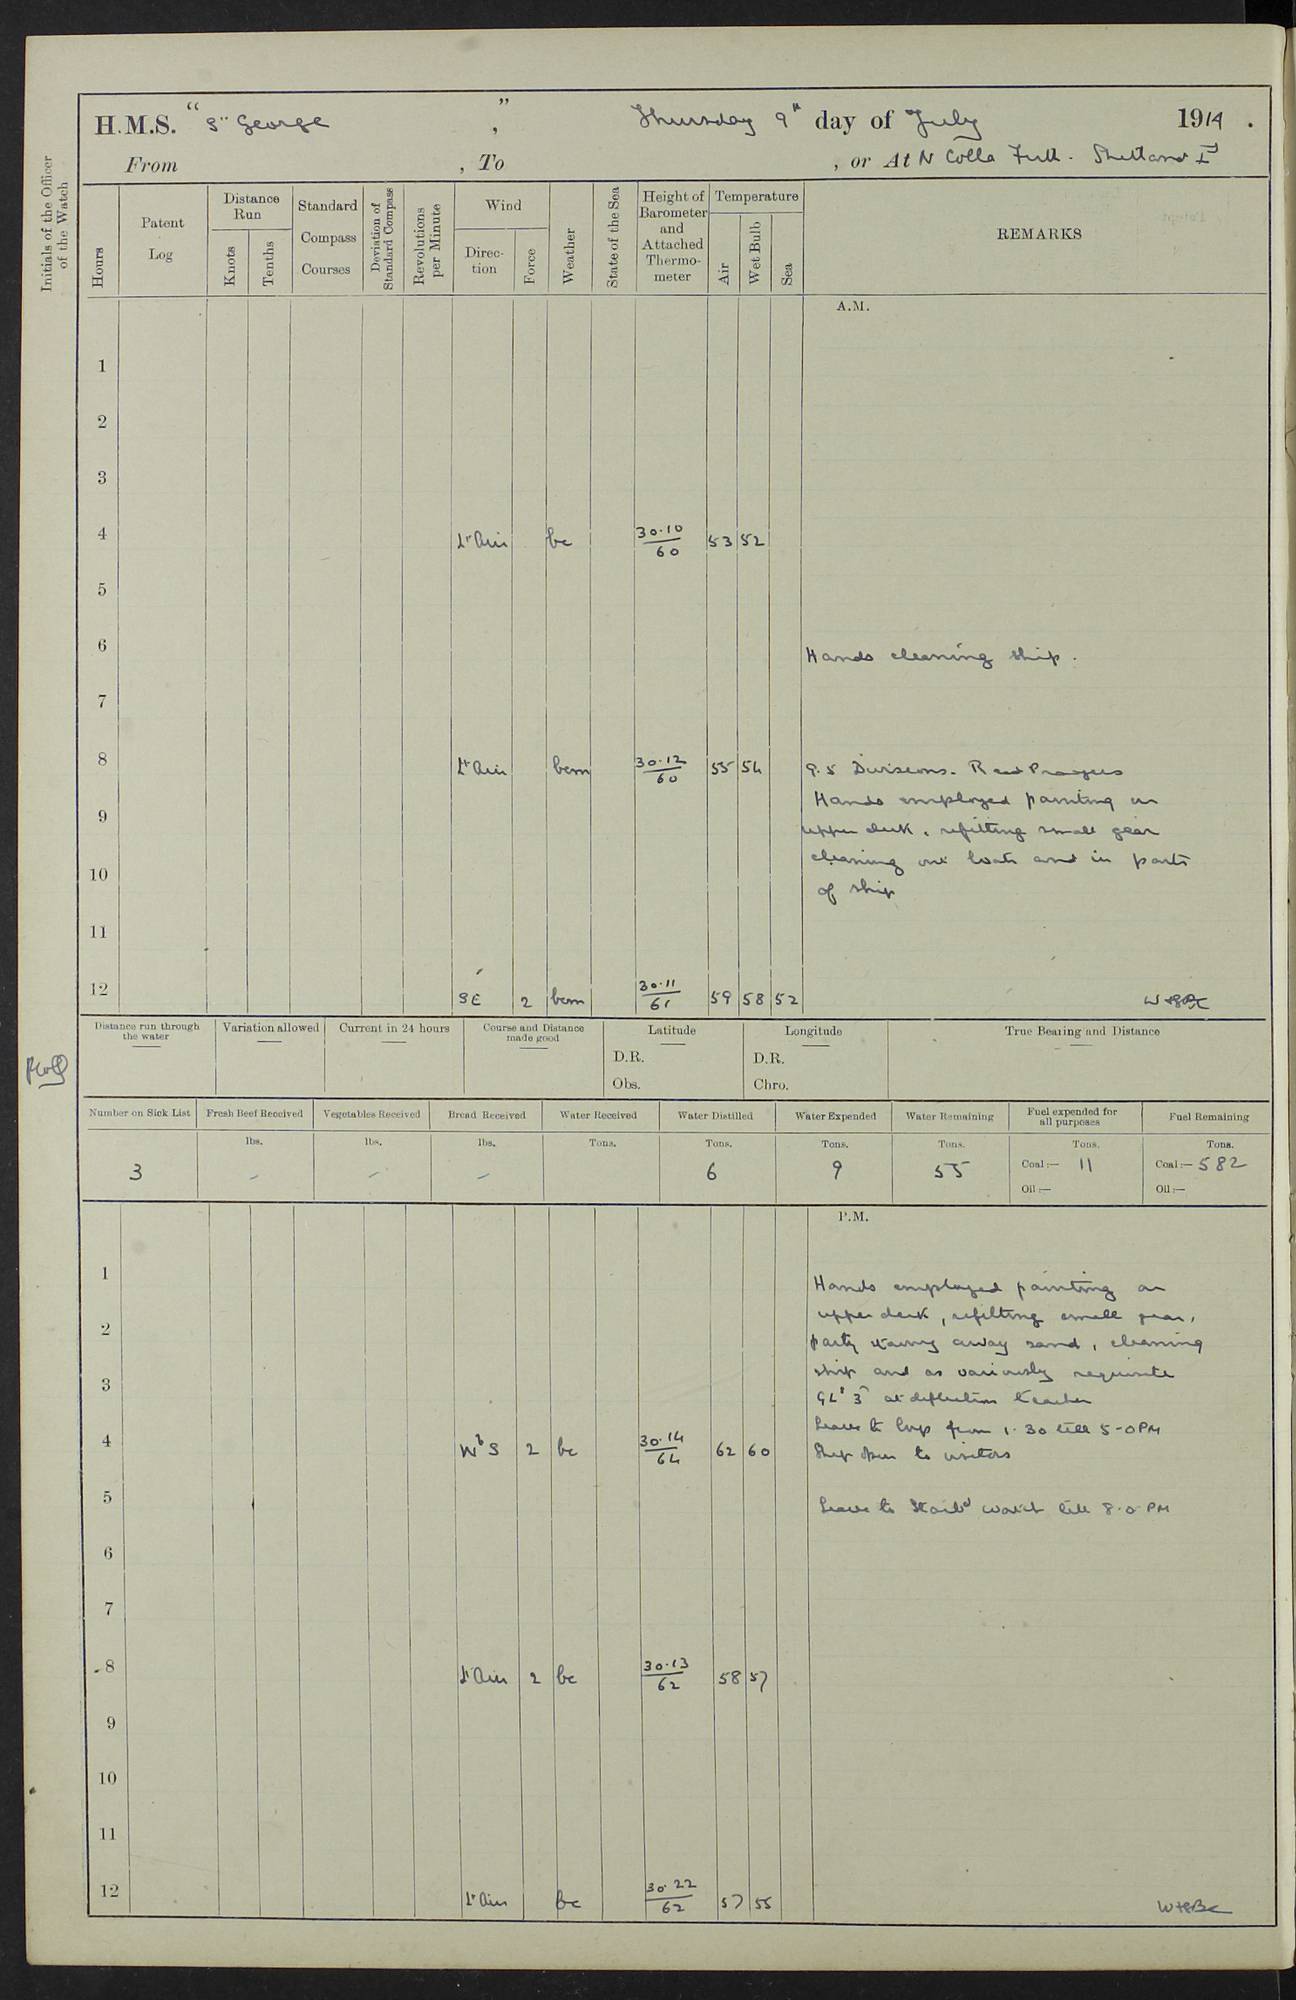 H.M.S. "St George", Thursday 9th day of July 1914.
From , To , or At N Colla Firth. Shetland Is
Initials of the Officer of the Watch
Hours
Patent Log
Distance Run
Knots
Tenths
Standard Compass Courses
Deviation of Standard Compass
Revolutions per Minute
Wind
Direction
Force
Weather
State of the Sea
Height of Barometer and Attached Thermometer
Temperature
Air
Wet Bulb
Sea
REMARKS
A.M.
1
2
3
4 Lt Air bc 30.10 60 53 52
5
6 Hands cleaning ship.
7
8 Lt Air bcm 30.12 60 55 54 9.5 Divisions. Read Prayers
Hands employed painting on
9 upper deck, refitting small gear
cleaning out boats and in parts
10 of ship
11
12 SE 2 bcm 30.11 61 59 58 52
Distance run through the water
Variation allowed
Current in 24 hours
Course and Distance made good
Latitude
D.R.
Obs.
Longitude
D.R.
Chro.
True Bearing and Distance
Number on Sick List 3
Fresh Beef Received lbs. -
Vegetables Received lbs. -
Bread Received lbs. -
Water Received Tons.
Water Distilled Tons. 6
Water Expended Tons. 9
Water Remaining Tons. 55
Fuel expended for all purposes Tons. Coal:— 11 Oil:—
Fuel Remaining Tons. Coal:— 582 Oil:—
P.M.
1 Hands employed painting on
upper deck, refitting small gear,
2 party away sand, cleaning
ship and as variously requisite
3 GLs 3 at deflection teacher
Leave to from 1.30 till 5-0 PM
4 WbS 2 bc 30.14 64 62 60 Ship open to visitors
5 Leave to Starbd watch till 8.0 PM
6
7
8 Lt Air 2 bc 30.13 62 58 57
9
10
11
12 Lt Air bc 30.22 62 57 55